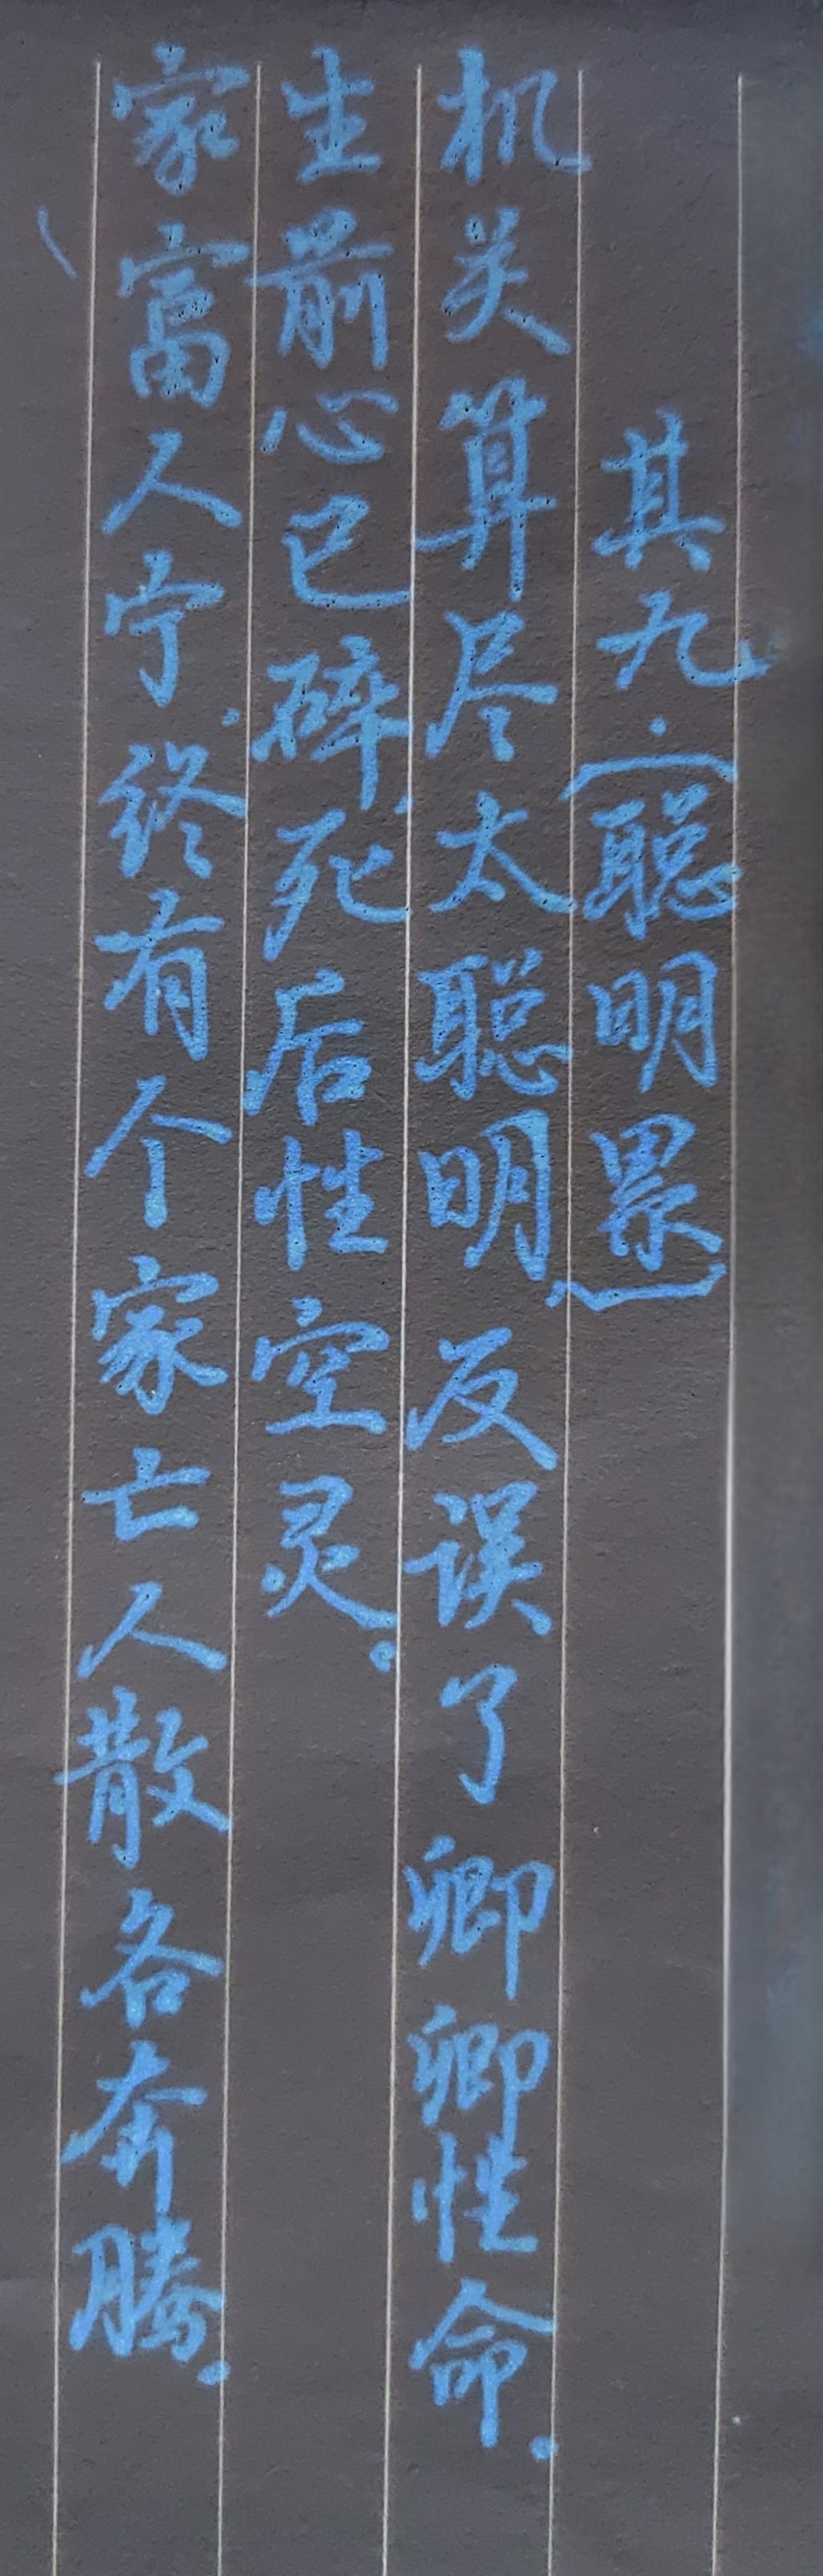 其九·〔聪明累〕
机关算尽太聪明,反误了卿卿性命.
生前心已碎,死后性空灵.
家富人宁.终有个家亡人散各奔腾.